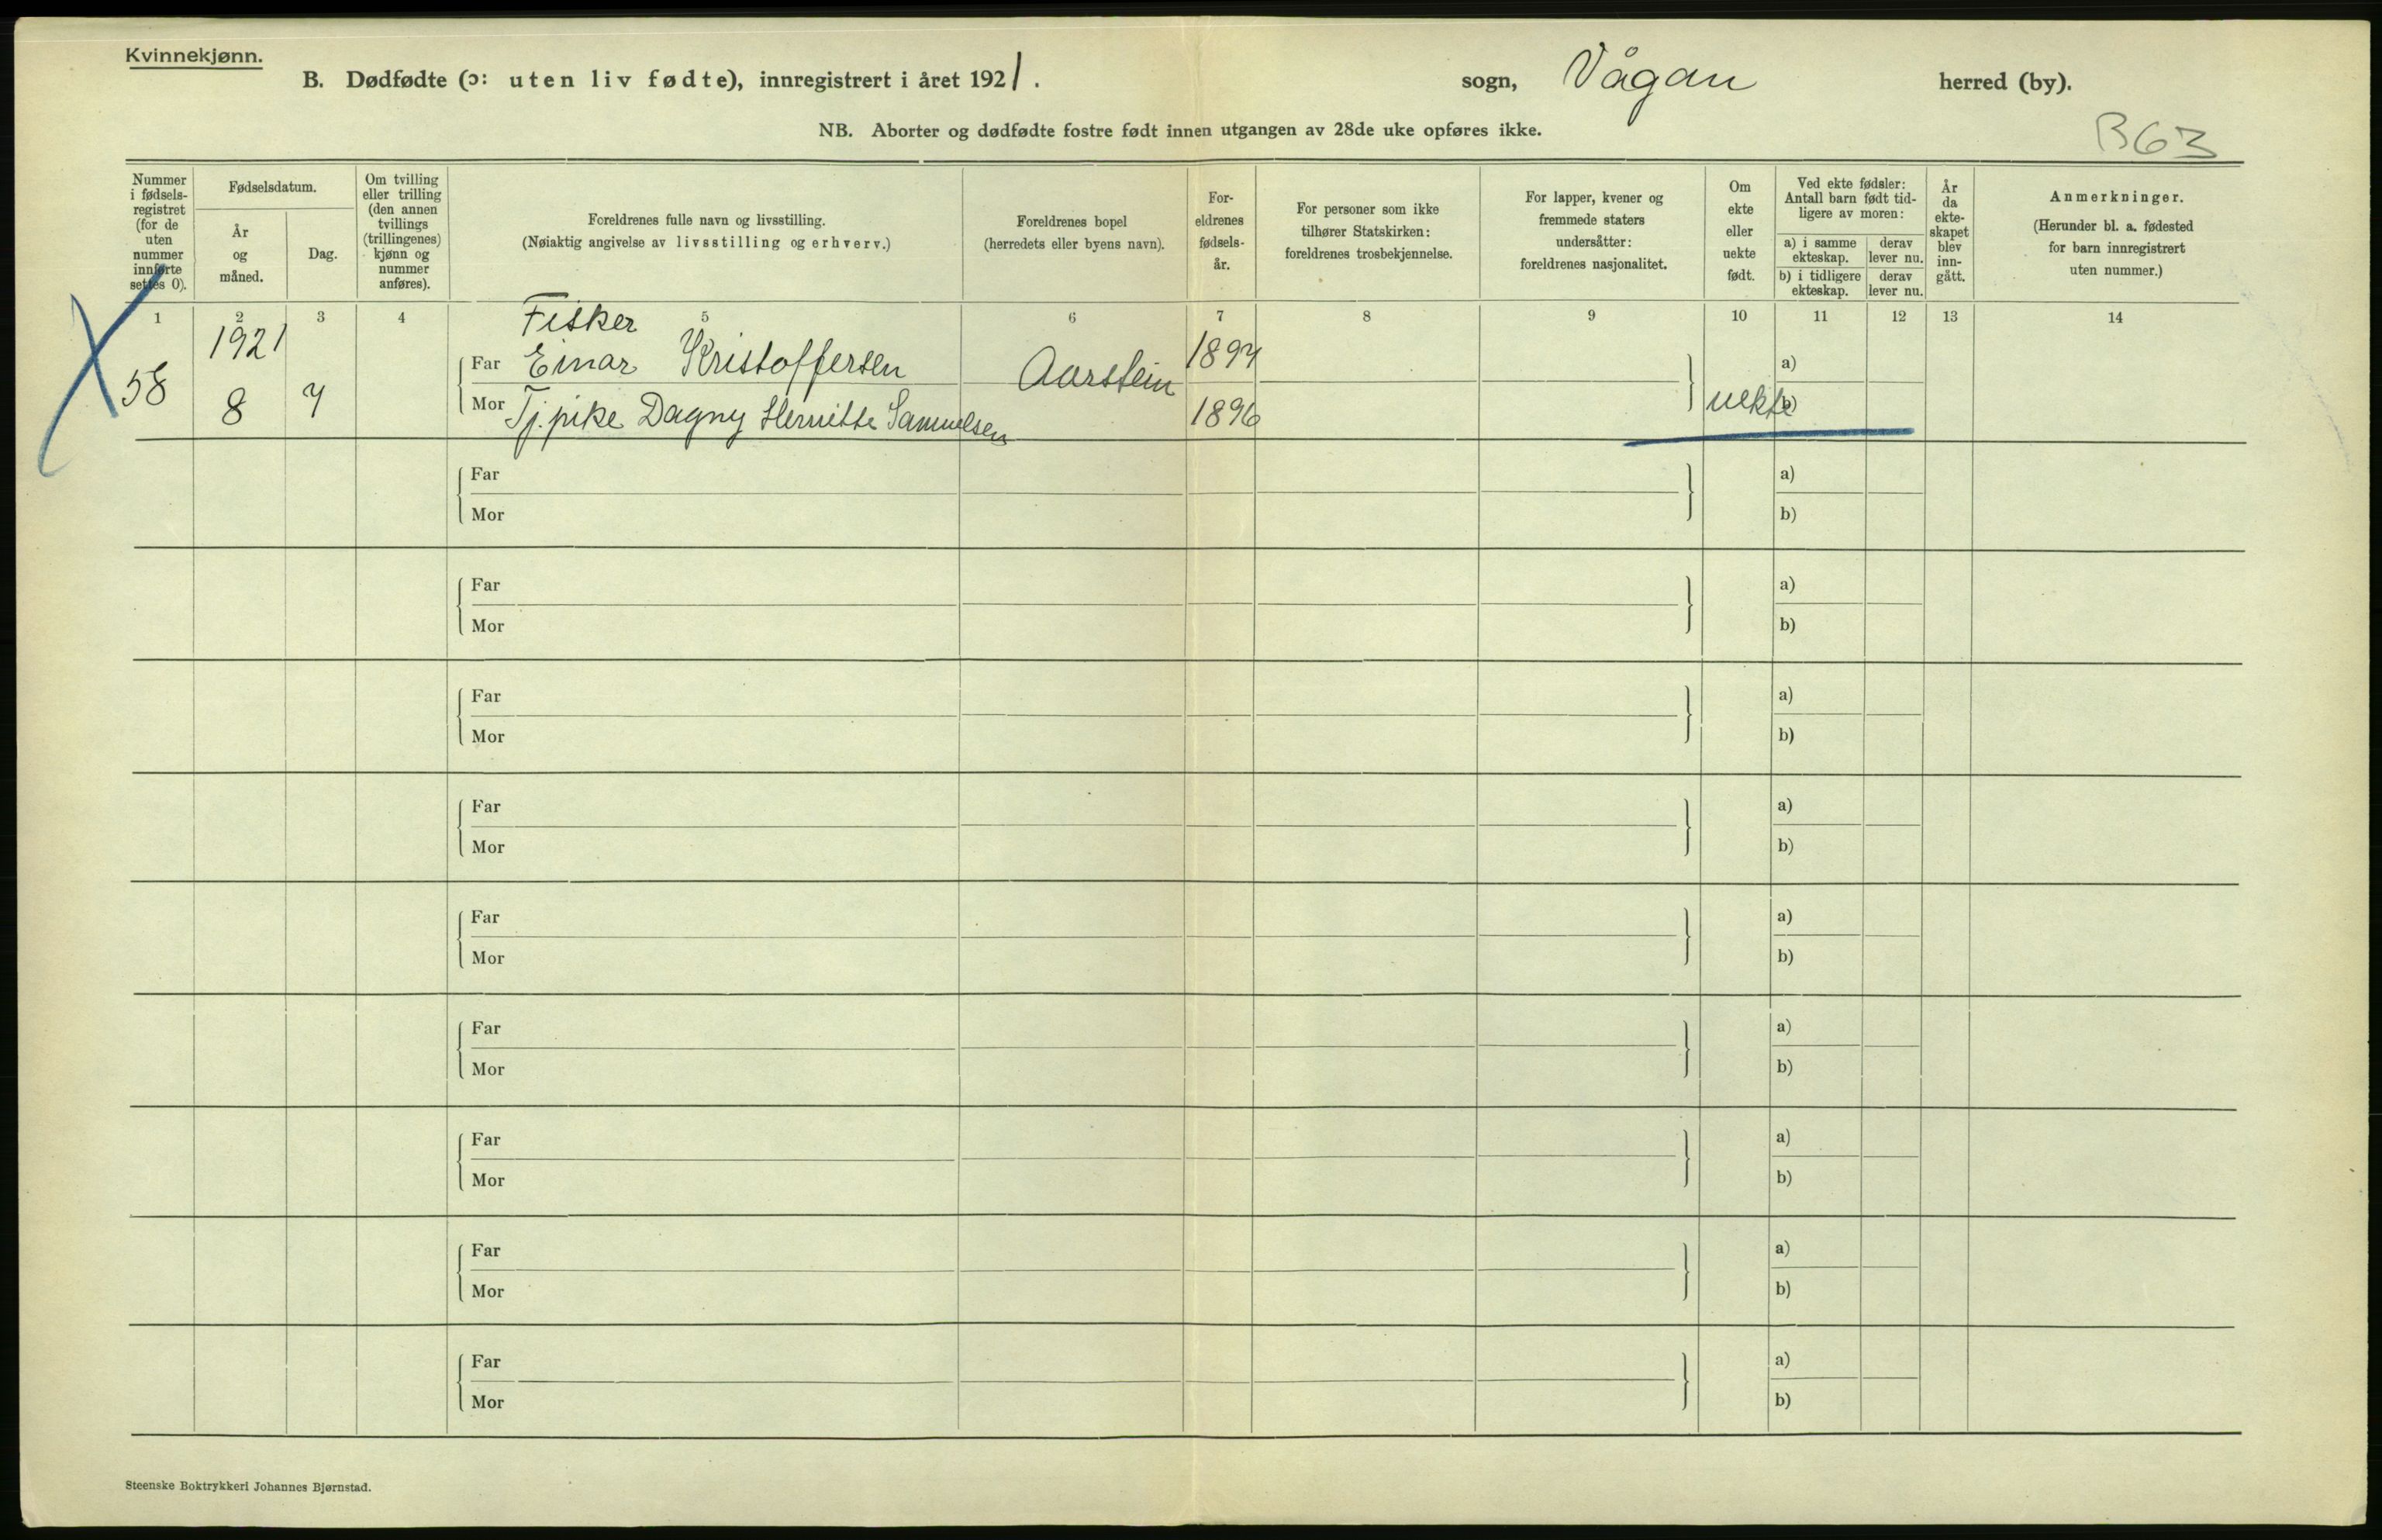 Kvinnekjønn.
B. Dødfødte (ɔ: uten liv fødte), innregistrert i året 1921. sogn, Vågan herred (by).
NB. Aborter og dødfødte fostre født innen utgangen av 28de uke opføres ikke.
B63
Nummer
i fødsels-
registret
(for de
uten
nummer
innførte
settes 0).
Fødselsdatum.
År
og
måned.
Dag.
Om tvilling
eller trilling
(den annen
tvillings
(trillingenes)
kjønn og
nummer
anføres).
Foreldrenes fulle navn og livsstilling.
(Nøiaktig angivelse av livsstilling og erhverv.)
Foreldrenes bopel
(herredets eller byens navn).
For-
eldrenes
fødsels-
år.
For personer som ikke
tilhører Statskirken:
foreldrenes trosbekjennelse.
For lapper, kvener og
fremmede staters
undersåtter:
foreldrenes nasjonalitet.
Om
ekte
eller
uekte
født.
Ved ekte fødsler:
Antall barn født tid-
ligere av moren:
a) i samme
ekteskap.
derav
lever nu.
b) i tidligere
ekteskap.
derav
lever nu.
År
da
ekte-
skapet
blev
inn-
gått.
Anmerkninger.
(Herunder bl. a. fødested
for barn innregistrert
uten nummer.)
1 2 3 4 5 6 7 8 9 10 11 12 13 14
1921 Fisker
Far Einar Kristoffersen 1894 a)
58 8 7 Aarstein
Mor Tj. pike Dagny Samuelsen 1896 uekte b)
Far a)
Mor b)
Far a)
Mor b)
Far a)
Mor b)
Far a)
Mor b)
Far a)
Mor b)
Far a)
Mor b)
Far a)
Mor b)
Far a)
Mor b)
Far a)
Mor b)
Steenske Boktrykkeri Johannes Bjørnstad.